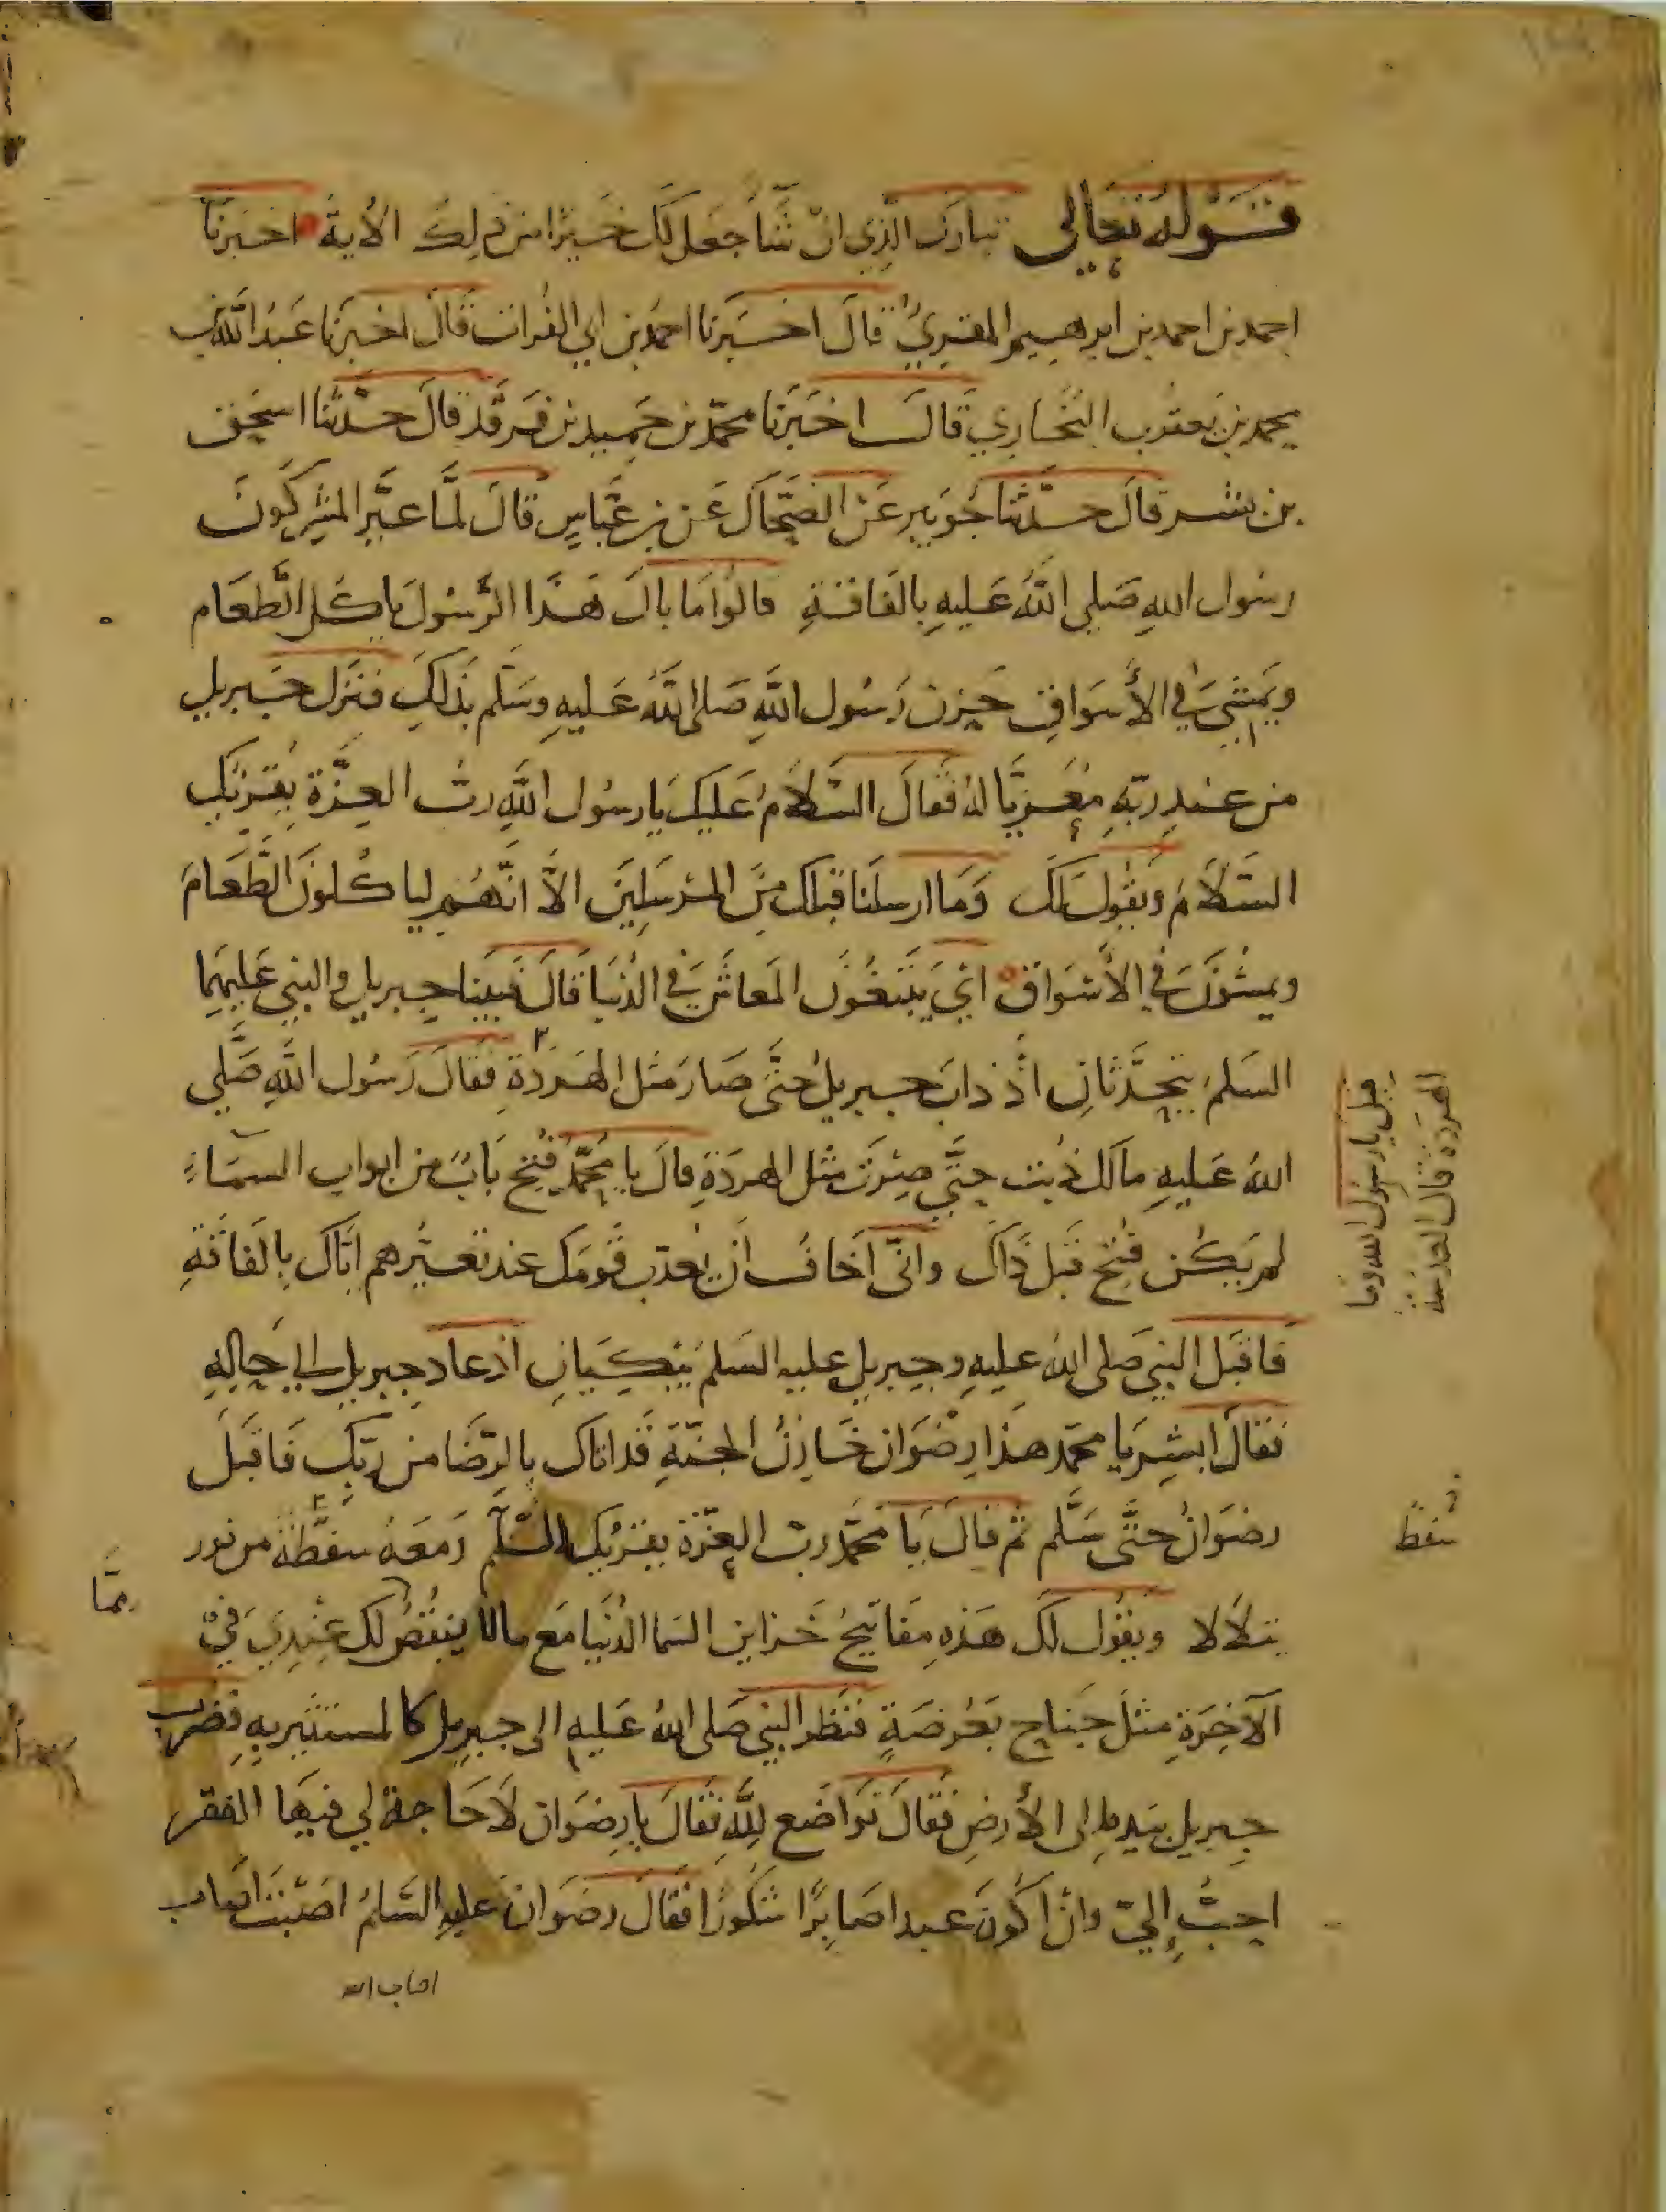 قوله تعالى تبارك الذي ان شا جعل لك خيرا من ذلك الاية اخبرنا
احمد بن احمد بن ابرهيم المقري قال اخبرنا احمد بن ابي الفرات قال اخبرنا عبد الله بن
محمد بن يعقوب البخاري قال اخبرنا محمد بن حميد بن فرقد قال حدثنا اسحق
بن بشر قال حدثنا جويبر عن الضحاك عن بن عباس قال لما عير المشركون
رسول الله صلى الله عليه بالفاقة قالوا ما بال هذا الرسول ياكل الطعام
ويمشي في الأسواق حزن رسول الله صلى الله عليه وسلم بذلك فنزل جبريل
من عند ربه معزيا له فقال السلام عليك يا رسول الله رب العزة يقريك
السلام ويقول لك وما ارسلنا قبلك من المرسلين الا انهم لياكلون الطعام
ويمشون في الأسواق اي يبتغون المعاش في الدنيا قال فبينا جبريل والنبي عليهما
السلم يتحدثان اذ ذاب جبريل حتى صار مثل الهردة فقال رسول الله صلى
الله عليه مالك ذبت حتى صرت مثل الهردة قال يا محمد فتح باب من ابواب السماء
لم يكن فتح قبل ذاك واني اخاف ان يعذب قومك عند تعييرهم اياك بالفاقة
فاقبل النبي صلى الله عليه وجبريل عليه السلم يبكيان اذ عاد جبريل الى حاله
فقال ابشر يا محمد هذا رضوان خازن الجنة قد اتاك بالرضا من ربك فاقبل
رضوان حتى سلم ثم قال يا محمد رب العزة يقريك السلم ومعه سفطة من نور
يتلالا ويقول لك هذه مفاتيح خزاين السما الدنيا مع مالا ينقص لك عندي في
الآخرة مثل جناح بعوضة فنظر النبي صلى الله عليه الى جبريل كالمستشير به فضرب
جبريل بيده الى الأرض فقال تواضع لله فقال يا رضوان لا حاجة لي فيها الفقر
احب إلي وان اكون عبدا صابرا شكورا فقال رضوان عليه السلام اصبت اصاب
اصاب الله
قيل يا رسول الله وما
الهردة قال العدسة
سفط
مما